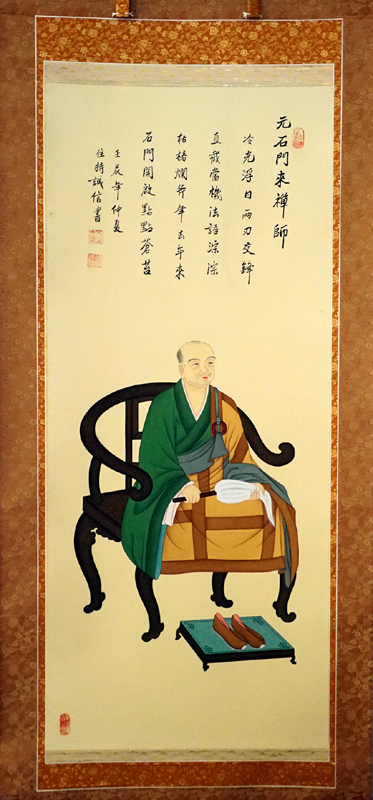 元石門來禪師
冷光浮日兩刃交鋒
直截當機法語淙淙
枯椿爛斧年去年來
石門開啟點點蒼苔
壬辰年仲夏
住持誠信書